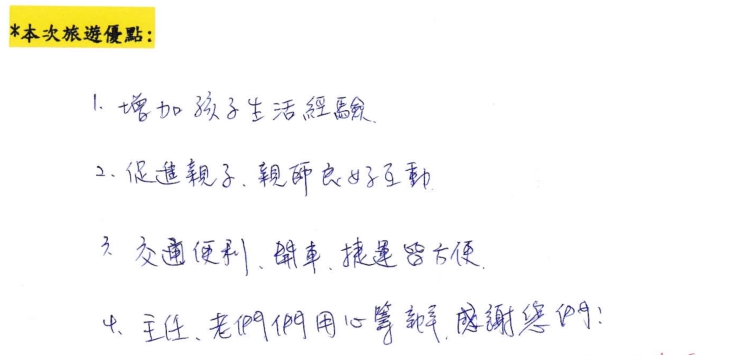 *本次旅遊優點:
1. 增加孩子生活經驗.
2. 促進親子、親師良好互動.
3. 交通便利、開車、捷運皆方便.
4. 主任、老師們用心籌辦,感謝您們!